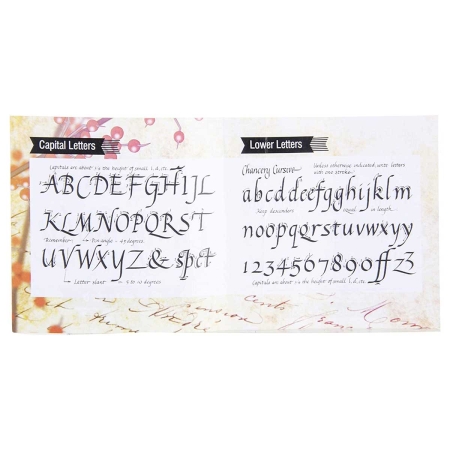 Capital Letters
Capitals are about 1½ the height of small l, d, etc.
ABCDEFGHIJL
KLMNOPQRST
Remember: Pen angle = 45 degrees
UVWXYZ&
Letter slant = 8 to 10 degrees
Lower Letters
Chancery Cursive
Unless otherwise indicated, write letters
with one stroke.
abcddeefgghijklm
Keep descenders equal in length.
nopqrstuvwxyy
1234567890
Capitals are about 1½ the height of small l, d, etc.